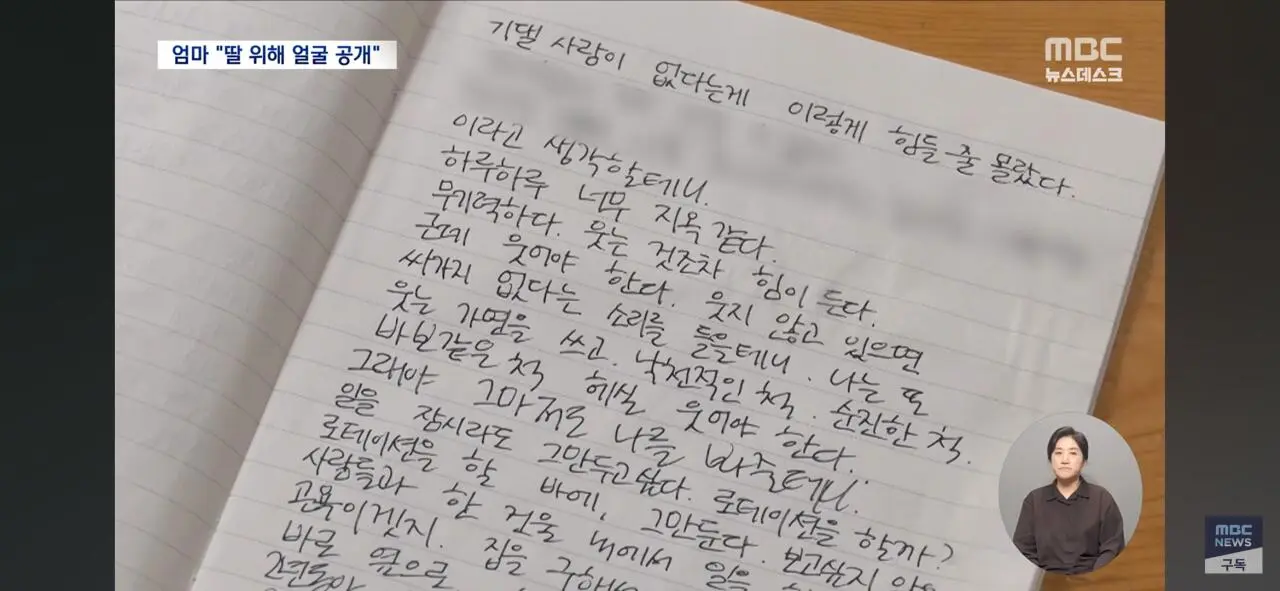 엄마 "딸 위해 얼굴 공개"
MBC
뉴스데스크
기댈 사람이 없다는게 이렇게 힘들 줄 몰랐다.
이라고 생각할테니.
하루하루 너무 지옥 같다.
무기력하다. 웃는 것조차 힘이 든다.
근데 웃어야 한다. 웃지 않고 있으면
싸가지 없다는 소리를 들을테니. 나는 또
웃는 가면을 쓰고. 낙천적인 척. 순진한 척.
바보같은 척 헤실 웃어야 한다.
그래야 그마저도 나를 봐줄테니.
일을 잠시라도 그만두고싶다. 로테이션을 할까?
로테이션을 할 바에, 그만둔다. 보고싶지 않은
사람들과 한 건물 내에서 일을
고욕이겠지. 집을
바로 옆으로
2년동안
MBC
NEWS
구독